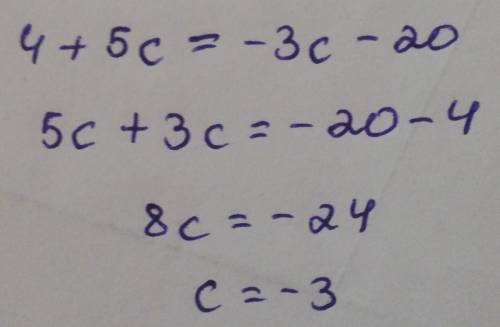 4 + 5c = -3c - 20
5c + 3c = -20 - 4
8c = -24
c = -3